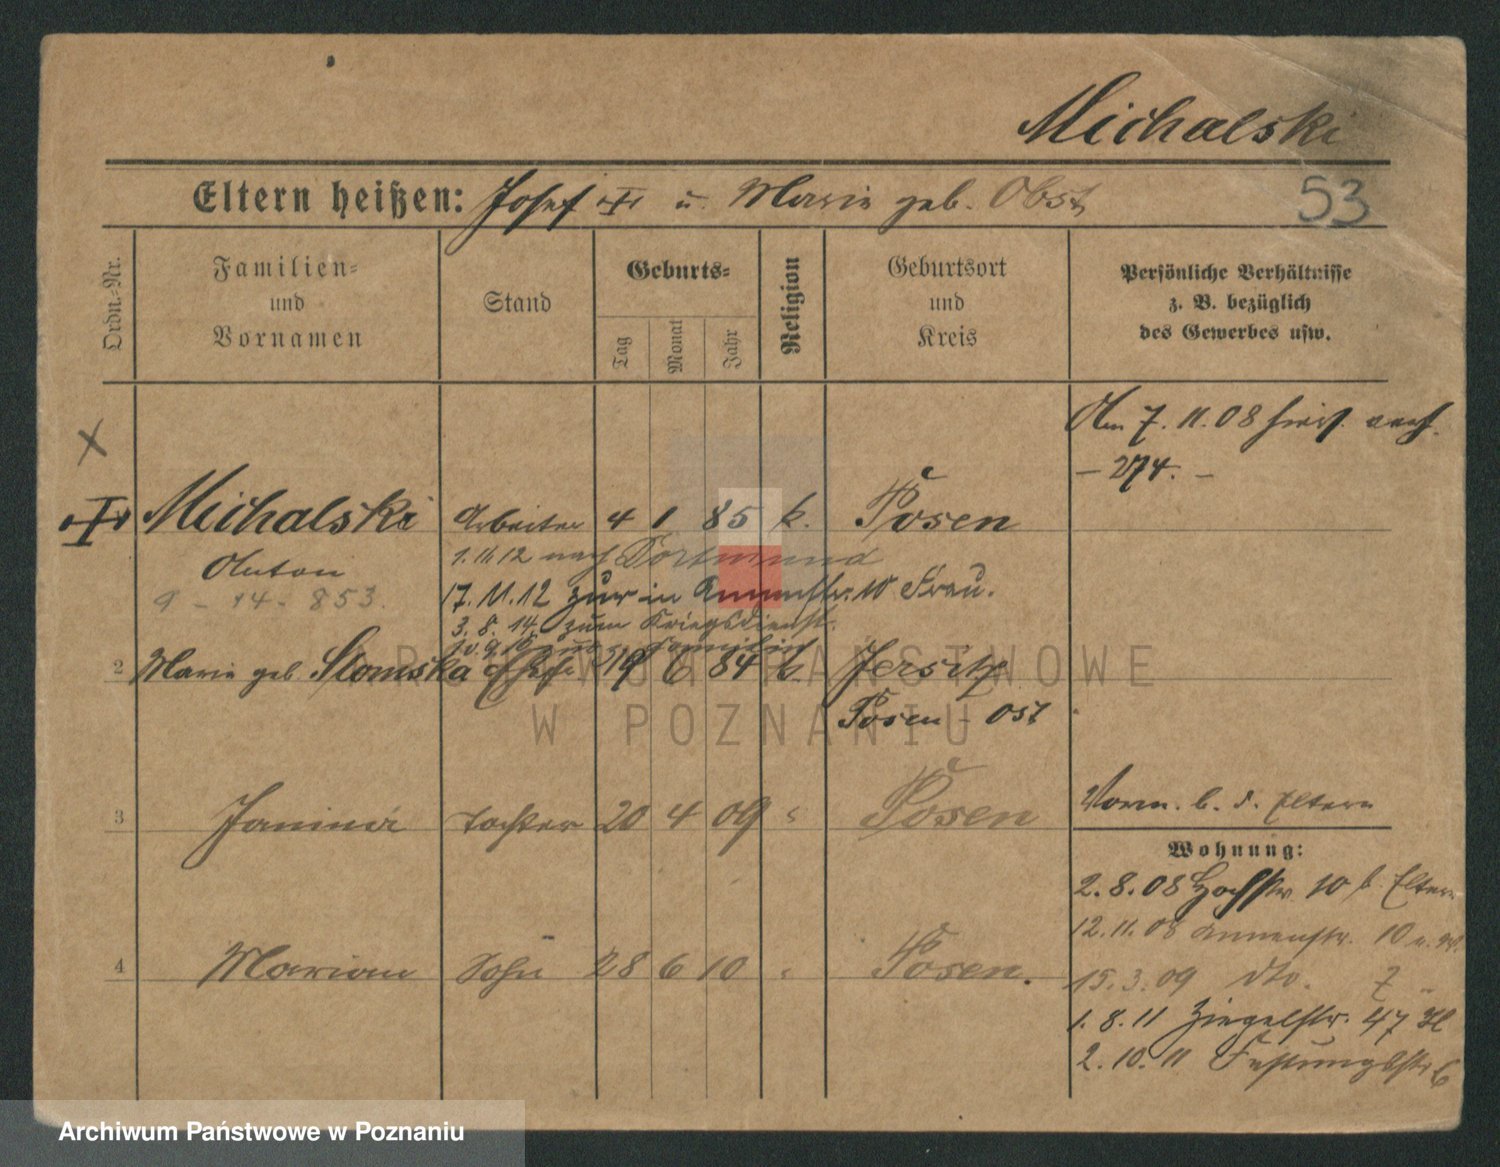 Michalski
Eltern heißen: Josef u. Marie geb. Obst
53
Ordn.-Nr.
Familien-
und
Vornamen
Stand
Geburts-
Tag
Monat
Jahr
Religion
Geburtsort
und
Kreis
Persönliche Verhältnisse
z. B. bezüglich
des Gewerbes usw.
Am 7. 11. 08 hier
- 274. -
Michalski Arbeiter 4 1 85 k. Posen
Anton
1. 11. 12 nach Dortmund
9 - 14 - 853.
17. 11. 12 zur in Annenstr. 10 Frau.
3. 8. 14. zum Kriegsdienst.
zur Familie
2 Marie geb. Slomska Ehefr. 19 6 84 k. Jersitz
Posen - Ost
3 Janina Tochter 20 4 09 Posen
Vorm. b. d. Eltern
Wohnung:
2. 8. 08 10 b Eltern
12. 11. 08 Annenstr. 10
4 Marian Sohn 28 6 10 Posen.
15. 3. 09 dto. 7
1. 8. 11 Ziegelstr. 47
2. 10. 11 Festungsstr 6
ARCHIWUM PAŃSTWOWE
W POZNANIU
Archiwum Państwowe w Poznaniu